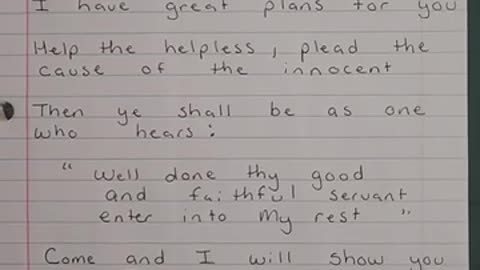 I have great plans for you
Help the helpless, plead the
cause of the innocent
Then ye shall be as one
who hears:
" Well done thy good
and faithful servant
enter into My rest "
Come and I will show you